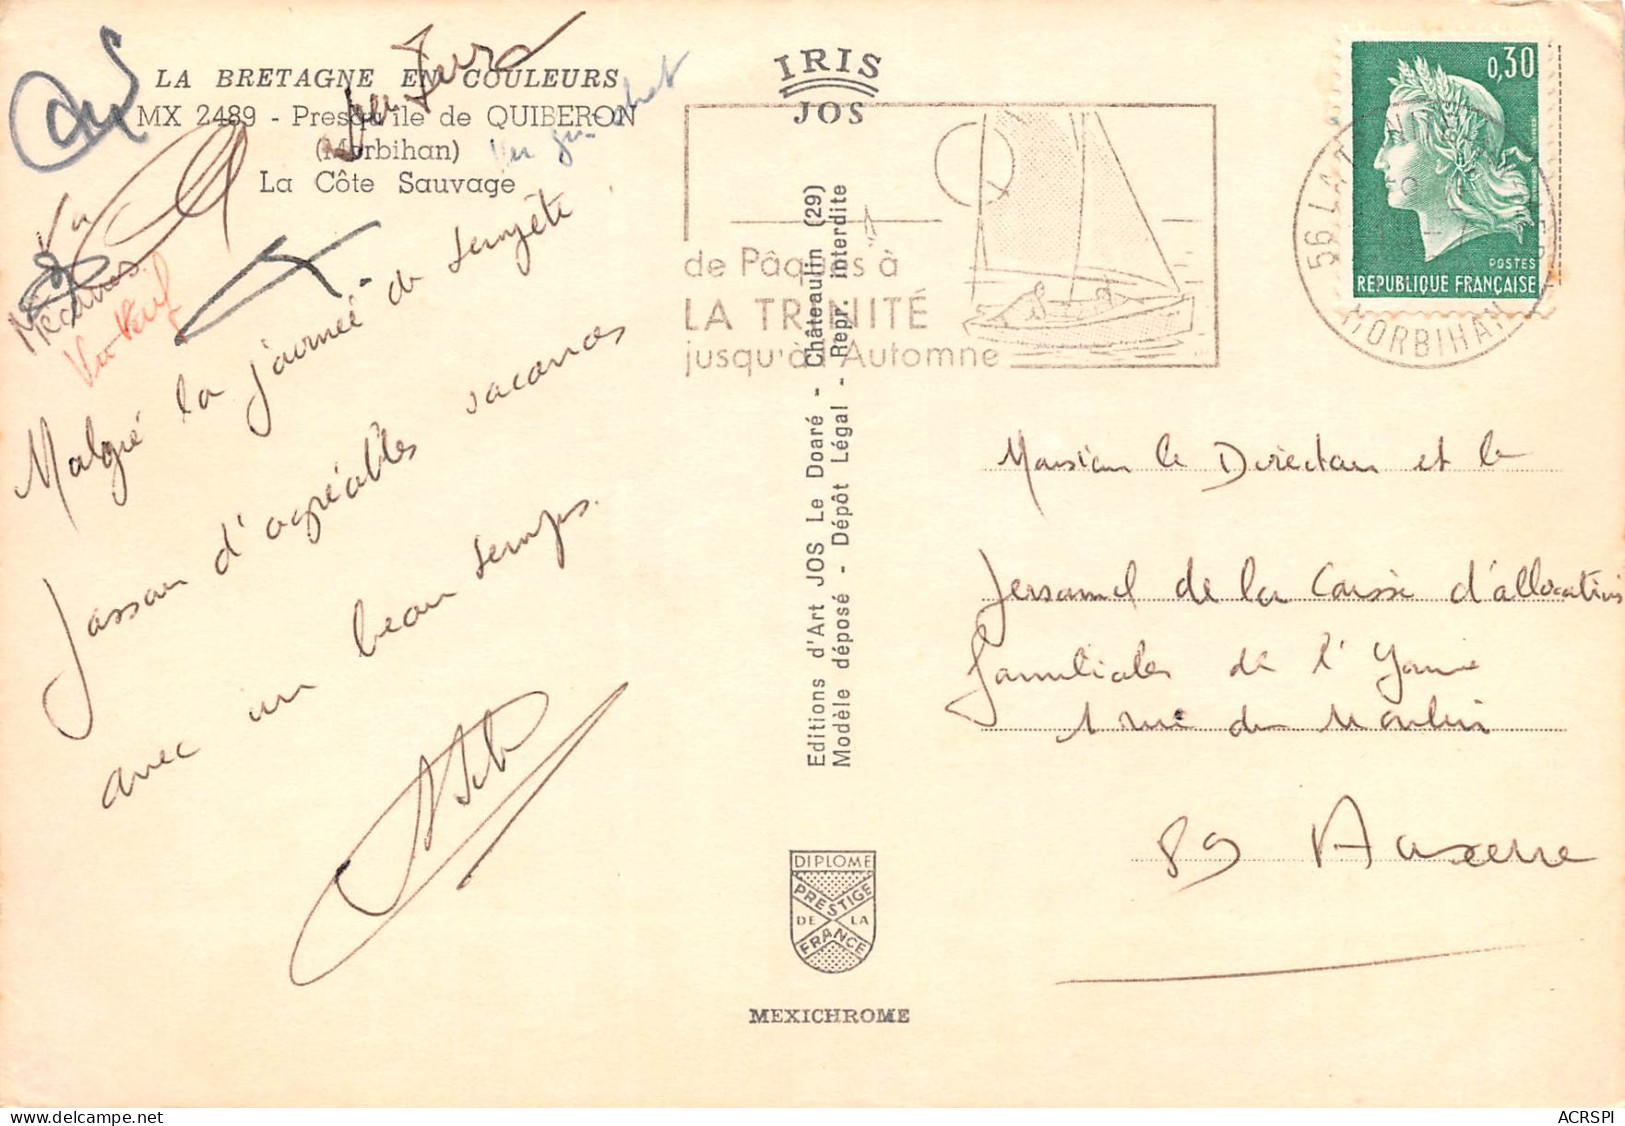 LA BRETAGNE EN COULEURS
MX 2489 - Presqu'île de QUIBERON
(Morbihan)
La Côte Sauvage
Malgré la journée de tempête
passons d'agréables vacances
avec un beau temps.
IRIS
JOS
de Pâques à
LA TRINITÉ
jusqu'à l'Automne
Editions d'Art JOS Le Doaré - Châteaulin (29)
Modèle déposé - Dépôt Légal - Repr. interdite
DIPLOME
PRESTIGE
DE LA
FRANCE
MEXICHROME
0,30
POSTES
REPUBLIQUE FRANÇAISE
56 LA TRINITE
MORBIHAN
Monsieur le Directeur et le
personnel de la Caisse d'allocations
familiales de l'Yonne
1 rue du Moulin
89 Auxerre
ACRSPI